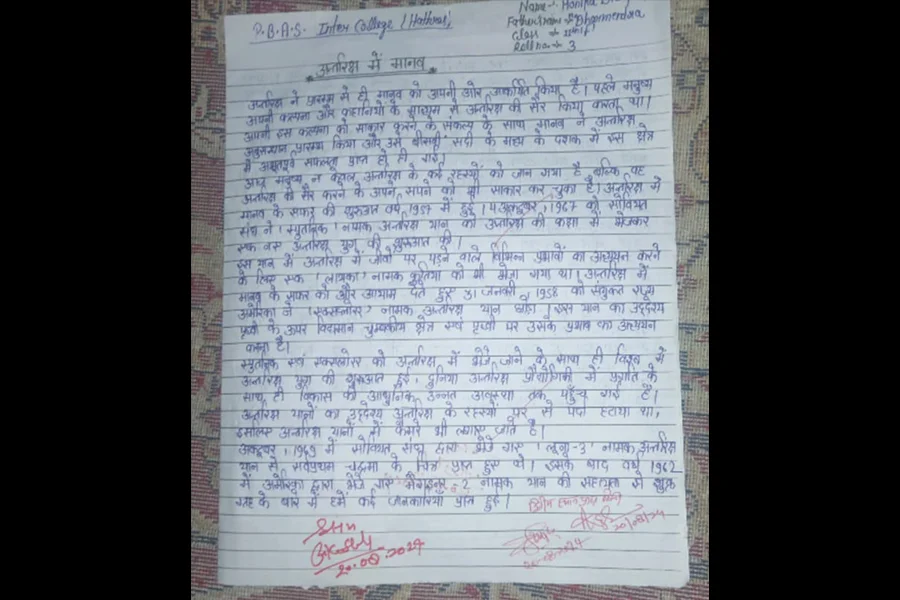 P.B.A.S. Inter College, Hathras,
Name :- 
Father's name :- Dharmendra
Class :-
Roll no :- 3
अन्तरिक्ष में मानव
अन्तरिक्ष ने प्रारम्भ से ही मानव को अपनी ओर आकर्षित किया है। पहले मनुष्य
अपनी कल्पना और कहानियों के माध्यम से अन्तरिक्ष की सैर किया करता था।
अपनी इस कल्पना को साकार करने के संकल्प के साथ मानव ने अन्तरिक्ष
अनुसन्धान प्रारम्भ किया और उसे बीसवीं सदी के मध्य के दशक में इस क्षेत्र
में अभूतपूर्व सफलता प्राप्त हो ही गई।
आज मनुष्य न केवल अन्तरिक्ष के कई रहस्यों को जान गया है बल्कि वह
अन्तरिक्ष की सैर करने के अपने सपने को भी साकार कर चुका है। अन्तरिक्ष में
मानव के सफर की शुरुआत वर्ष 1957 में हुई। 4 अक्टूबर, 1967 को सोवियत
संघ ने 'स्पुतनिक' नामक अन्तरिक्ष यान को अन्तरिक्ष की कक्षा में भेजकर
एक नए अन्तरिक्ष युग की शुरुआत की।
इस यान में अन्तरिक्ष में जीवों पर पड़ने वाले विभिन्न प्रभावों का अध्ययन करने
के लिए एक 'लायका' नामक कुतिया को भी भेजा गया था। अन्तरिक्ष में
मानव के सफर को और आयाम देते हुए 31 जनवरी, 1958 को संयुक्त राज्य
अमेरिका ने 'एक्सप्लोरर' नामक अन्तरिक्ष यान छोड़ा। इस यान का उद्देश्य
पृथ्वी के ऊपर विद्यमान चुम्बकीय क्षेत्र एवं पृथ्वी पर उसके प्रभाव का अध्ययन
करना है।
स्पुतनिक एवं एक्सप्लोरर को अन्तरिक्ष में भेजे जाने के साथ ही विश्व में
अन्तरिक्ष युग की शुरुआत हुई। दुनिया अन्तरिक्ष प्रौद्योगिकी में प्रगति के
साथ ही विकास की आधुनिक उन्नत अवस्था तक पहुँच गई है।
अन्तरिक्ष यानों का उद्देश्य अन्तरिक्ष के रहस्यों पर से पर्दा हटाना था,
इसलिए अन्तरिक्ष यानों में कैमरे भी लगाए जाते हैं।
अक्टूबर, 1969 में सोवियत संघ द्वारा भेजे गए 'लूना-3' नामक अन्तरिक्ष
यान से सर्वप्रथम चन्द्रमा के चित्र प्राप्त हुए थे। इसके बाद वर्ष 1962
में अमेरिका द्वारा भेजे गए मैराइनर-2 नामक यान की सहायता से शुक्र
ग्रह के बारे में हमें कई जानकारियाँ प्राप्त हुई।
20/08/24
20.08.2024